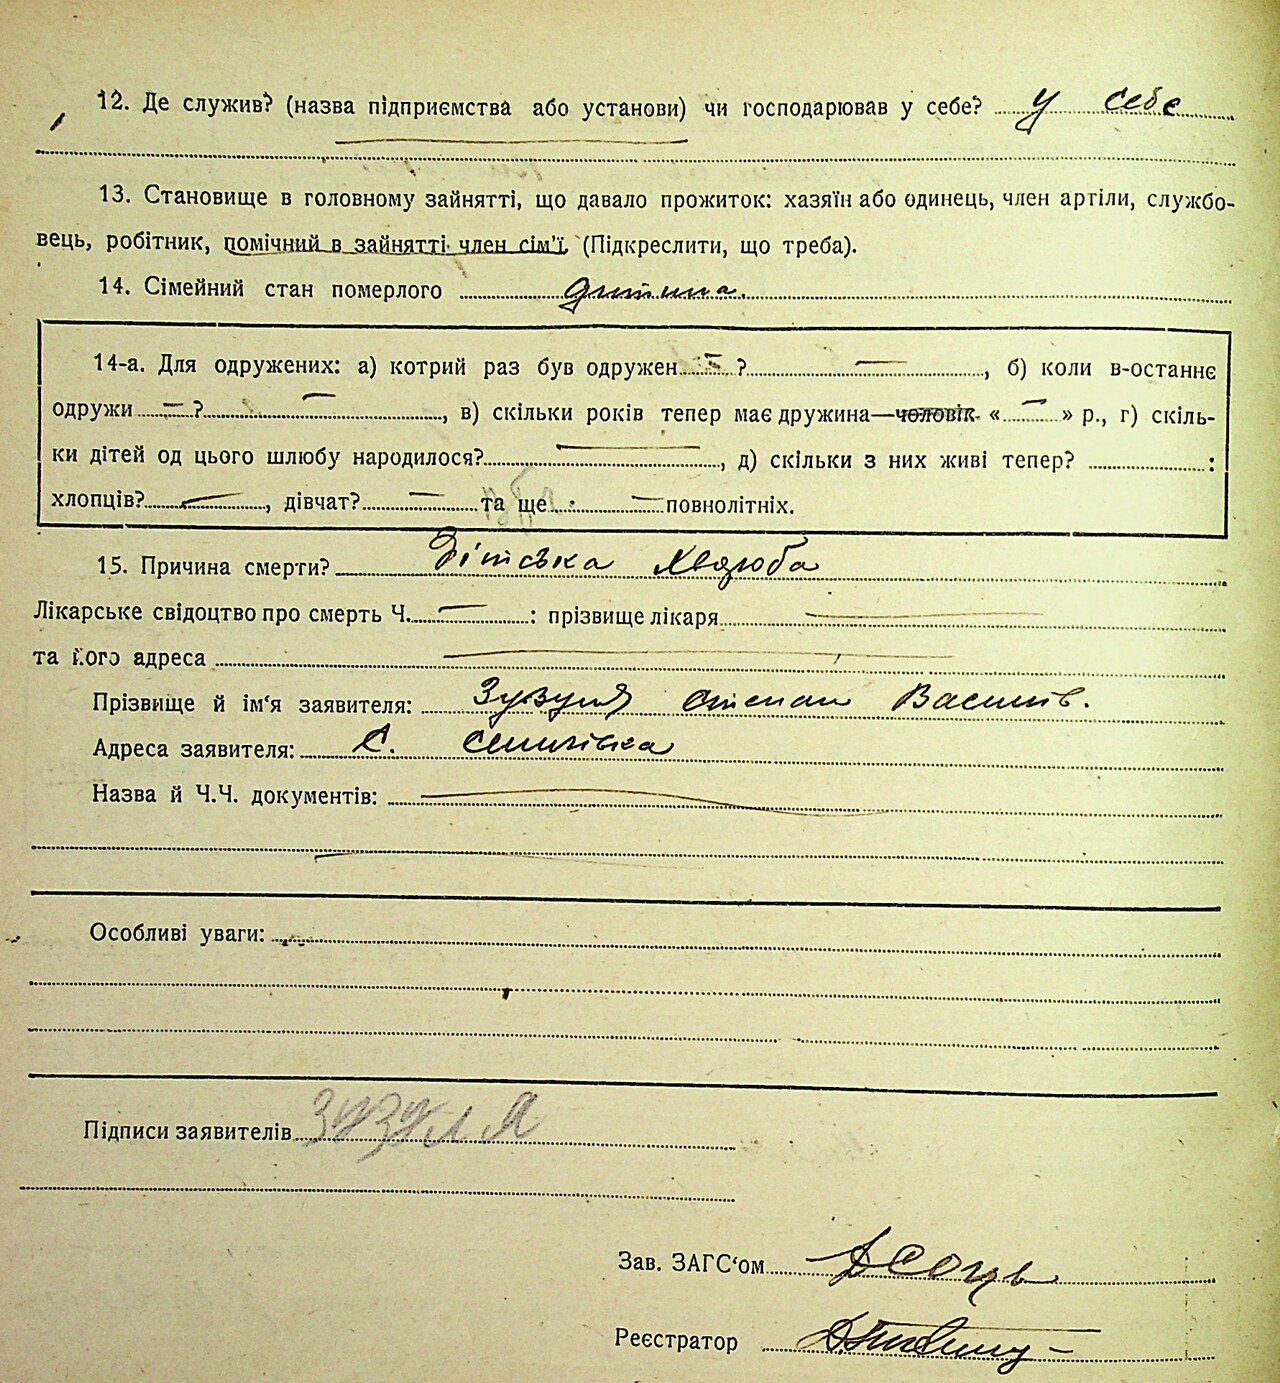 12. Де служив? (назва підприємства або установи) чи господарював у себе? у себе
13. Становище в головному зайнятті, що давало прожиток: хазяїн або одинець, член артіли, службо-
вець, робітник, помічний в зайнятті член сім'ї. (Підкреслити, що треба).
14. Сімейний стан померлого дитина.
14-а. Для одружених: а) котрий раз був одружен — ? —, б) коли в-останнє
одружи — ? —, в) скільки років тепер має дружина—чоловік « — » р., г) скіль-
ки дітей од цього шлюбу народилося? —, д) скільки з них живі тепер? :
хлопців? —, дівчат? — та ще — повнолітніх.
15. Причина смерти? Дітська хвороба
Лікарське свідоцтво про смерть Ч. — : прізвище лікаря —
та його адреса —
Прізвище й ім'я заявителя: Зузуля Степан Василів.
Адреса заявителя: С.
Назва й Ч.Ч. документів: —
Особливі уваги:
Підписи заявителів ЗУЗУЛЯ
Зав. ЗАГС'ом
Реєстратор